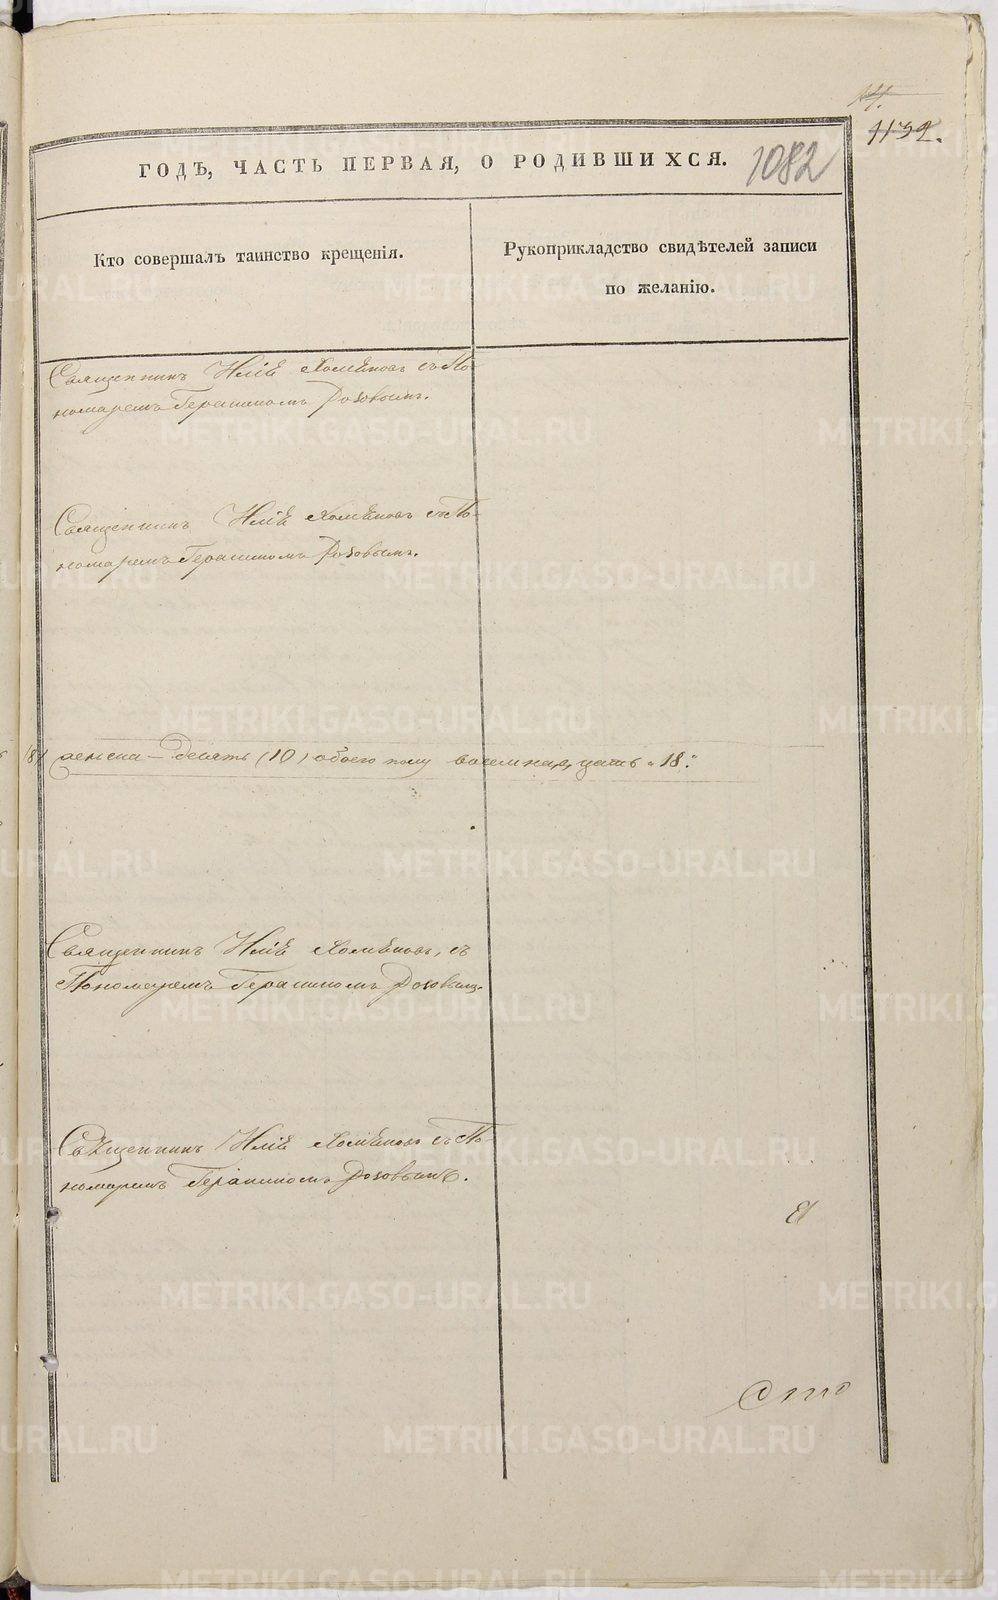 1139.
ГОДЪ, ЧАСТЬ ПЕРВАЯ, О РОДИВШИХСЯ. 1082
Кто совершалъ таинство крещенія.
Рукоприкладство свидѣтелей записи
по желанію.
Священникъ Илія Хомяковъ съ По-
номаремъ Герасимомъ Розовымъ.
Священникъ Илія Хомяковъ съ По-
номаремъ Герасимомъ Розовымъ.
женска – десять (10) обоего полу восемнадцать "18."
Священникъ Илія Хомяковъ, съ
Пономаремъ Герасимомъ Розовымъ.
Священникъ Илія Хомяковъ съ По-
номаремъ Герасимомъ Розовымъ.
METRIKI.GASO-URAL.RU